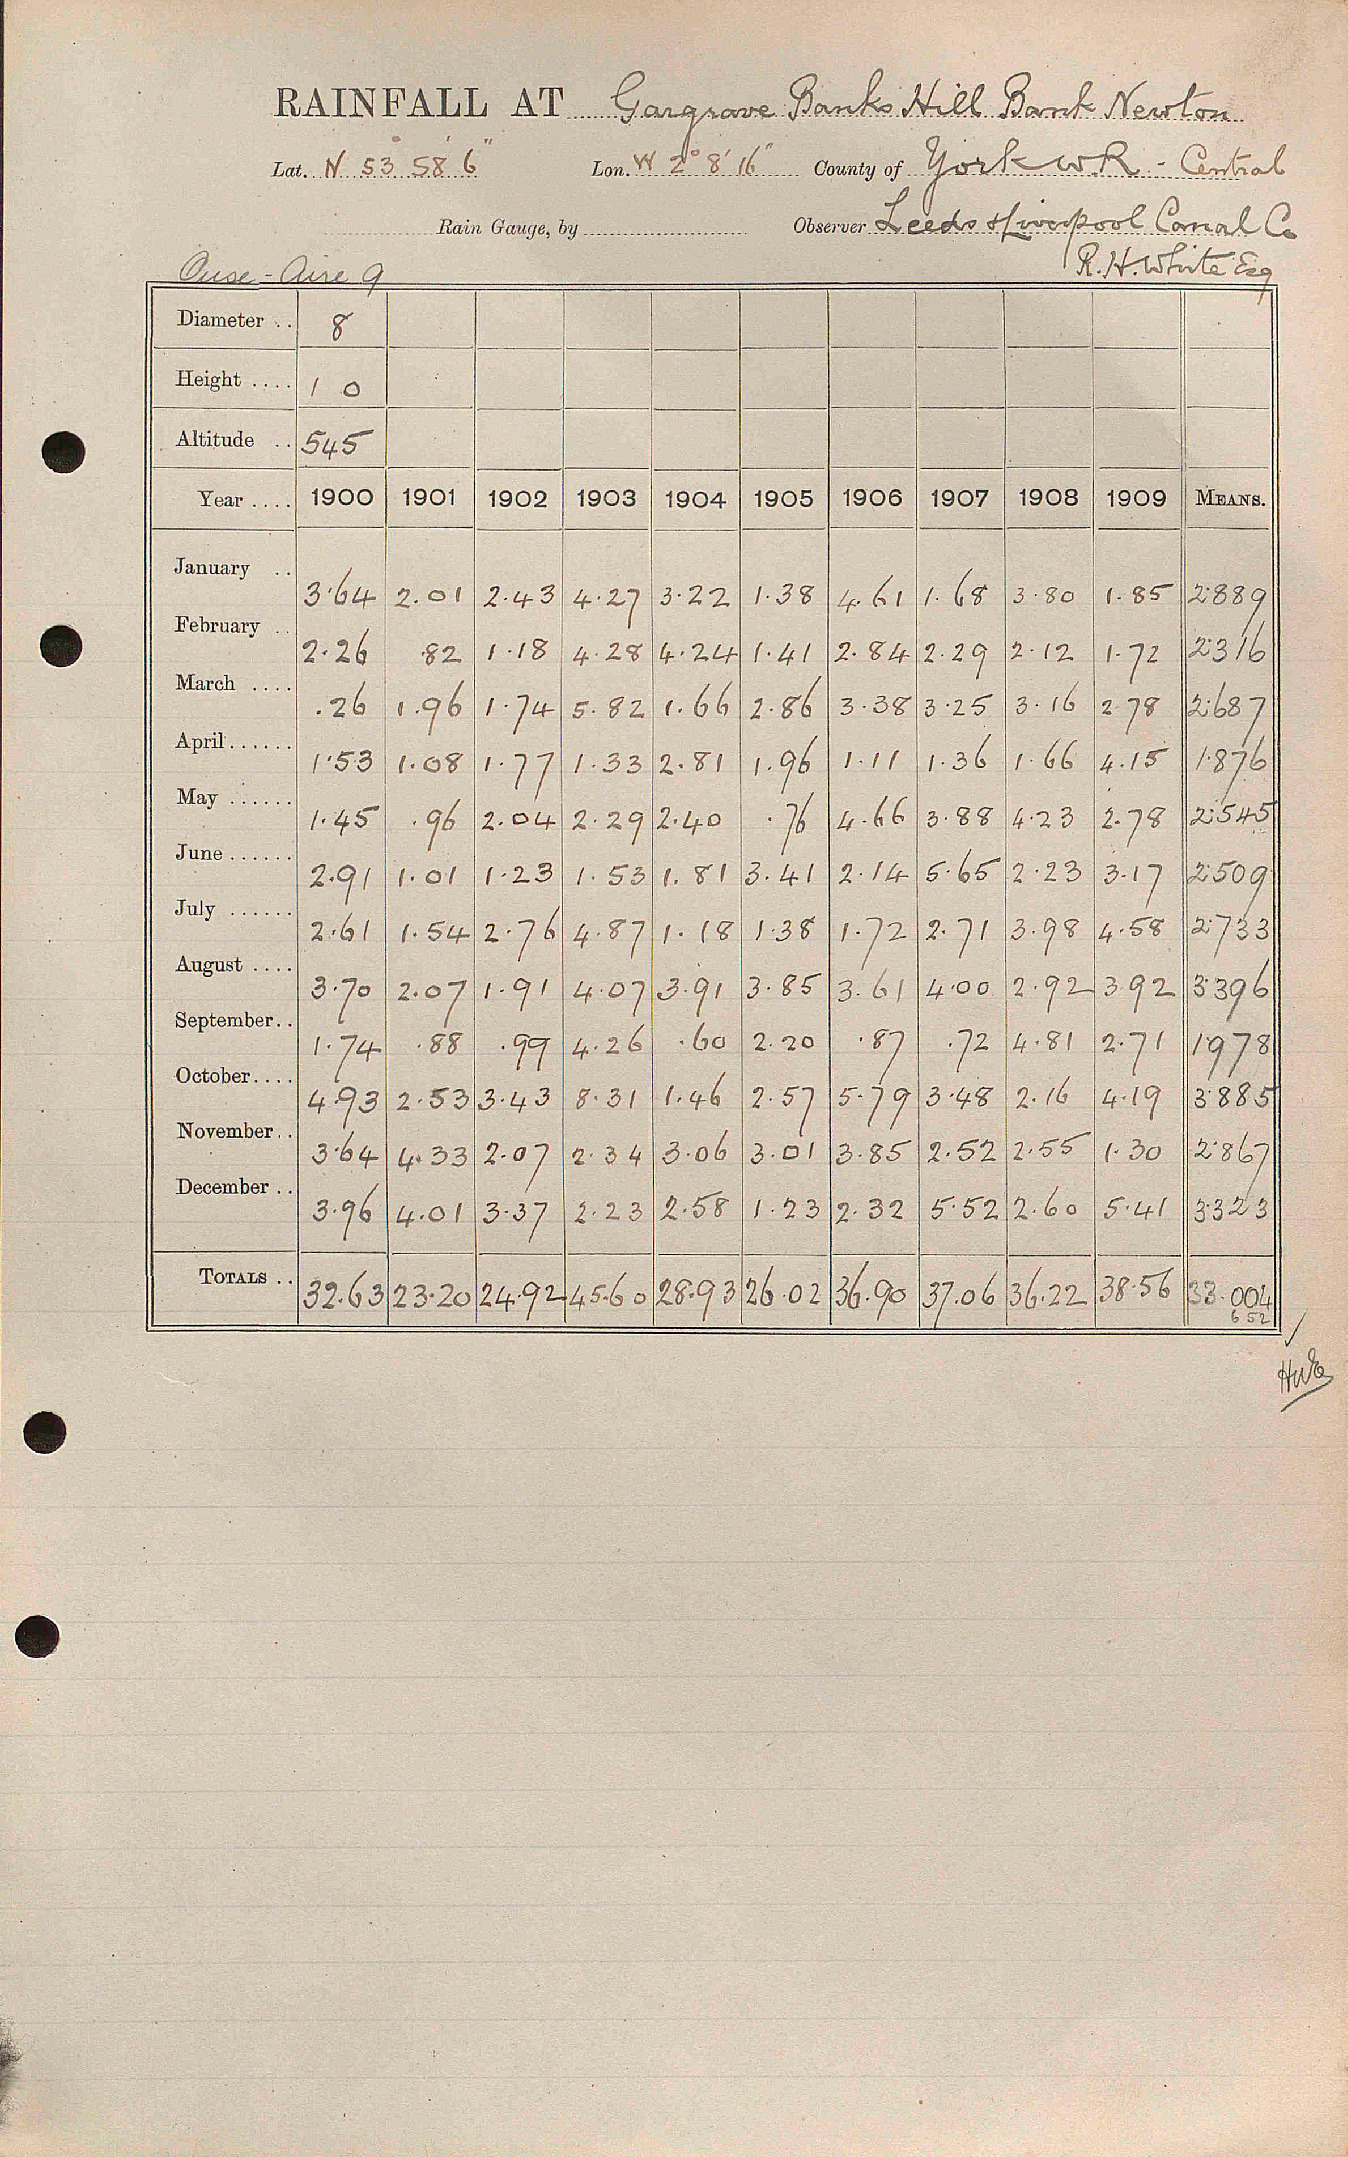 RAINFALL AT Gargrave Banks Hill Bank Newton
Lat. N 53° 58' 6" Lon. W 2° 8' 16" County of York W R - Central
Rain Gauge, by Observer Leeds & Liverpool Canal Co
Ouse - Aire 9 R. H. White Esq
Diameter .. 8
Height .... 1 0
Altitude .. 545
Year .... 1900 1901 1902 1903 1904 1905 1906 1907 1908 1909 MEANS.
January .. 3.64 2.01 2.43 4.27 3.22 1.38 4.61 1.68 3.80 1.85 2.889
February .. 2.26 .82 1.18 4.28 4.24 1.41 2.84 2.29 2.12 1.72 2.316
March .... .26 1.96 1.74 5.82 1.66 2.86 3.38 3.25 3.16 2.78 2.687
April ...... 1.53 1.08 1.77 1.33 2.81 1.96 1.11 1.36 1.66 4.15 1.876
May ...... 1.45 .96 2.04 2.29 2.40 .76 4.66 3.88 4.23 2.78 2.545
June ...... 2.91 1.01 1.23 1.53 1.81 3.41 2.14 5.65 2.23 3.17 2.509
July ...... 2.61 1.54 2.76 4.87 1.18 1.38 1.72 2.71 3.98 4.58 2.733
August .... 3.70 2.07 1.91 4.07 3.91 3.85 3.61 4.00 2.92 3.92 3.396
September .. 1.74 .88 .99 4.26 .60 2.20 .87 .72 4.81 2.71 1978
October .... 4.93 2.53 3.43 8.31 1.46 2.57 5.79 3.48 2.16 4.19 3.885
November .. 3.64 4.33 2.07 2.34 3.06 3.01 3.85 2.52 2.55 1.30 2.867
December .. 3.96 4.01 3.37 2.23 2.58 1.23 2.32 5.52 2.60 5.41 3.323
TOTALS .. 32.63 23.20 24.92 45.60 28.93 26.02 36.90 37.06 36.22 38.56 33.004
652